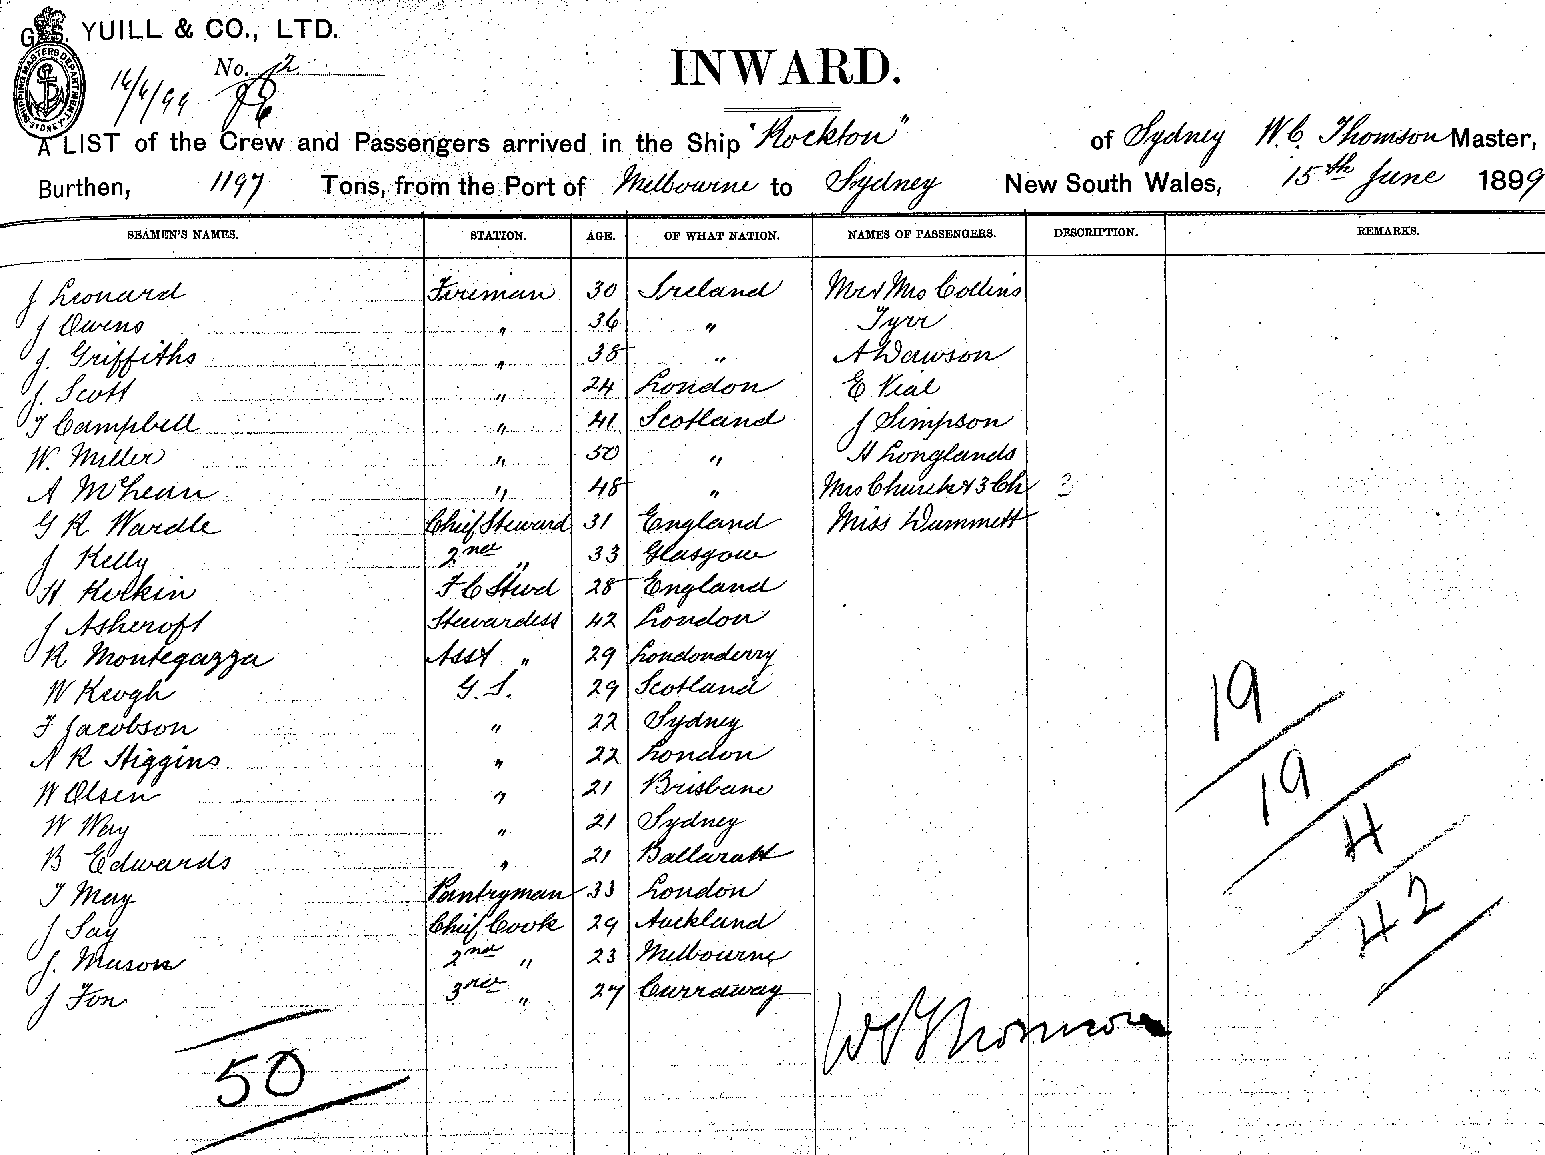 G.S. YUILL & CO., LTD.
No. 2
16/6/99
SHIPPING MASTERS DEPARTMENT SYDNEY
INWARD.
A LIST of the Crew and Passengers arrived in the Ship "Rockton" of Sydney W. C. Thomson Master,
Burthen, 1197 Tons, from the Port of Melbourne to Sydney New South Wales, 15th June 1899
SEAMEN'S NAMES. STATION. AGE. OF WHAT NATION. NAMES OF PASSENGERS. DESCRIPTION. REMARKS.
J Leonard Fireman 30 Ireland Mr & Mrs Collins
J Owens " 36 " Tyrr
J. Griffiths " 38 " A Dawson
J. Scott " 24 London E Vial
T Campbell " 41 Scotland J Simpson
W. Miller " 50 " H Longlands
A McLean " 48 " Mrs Church & 3 Ch
G R Wardle Chief Steward 31 England Miss Dummett
J Kelly 2nd " 33 Glasgow
H Kirkin F C Stwd 28 England
J Ashcroft Stewardess 42 London
R Montegazza Asst " 29 Londonderry
W Keogh G. S. 29 Scotland
F Jacobson " 22 Sydney
A R Higgins " 22 London
W Olsen " 21 Brisbane
W Way " 21 Sydney
B Edwards " 21 Ballaratt
T May Pantryman 33 London
J Say Chief Cook 29 Auckland
J. Mason 2nd " 23 Melbourne
J Fon 3rd " 27 Curraway
19
19
4
42
W C Thomson
50